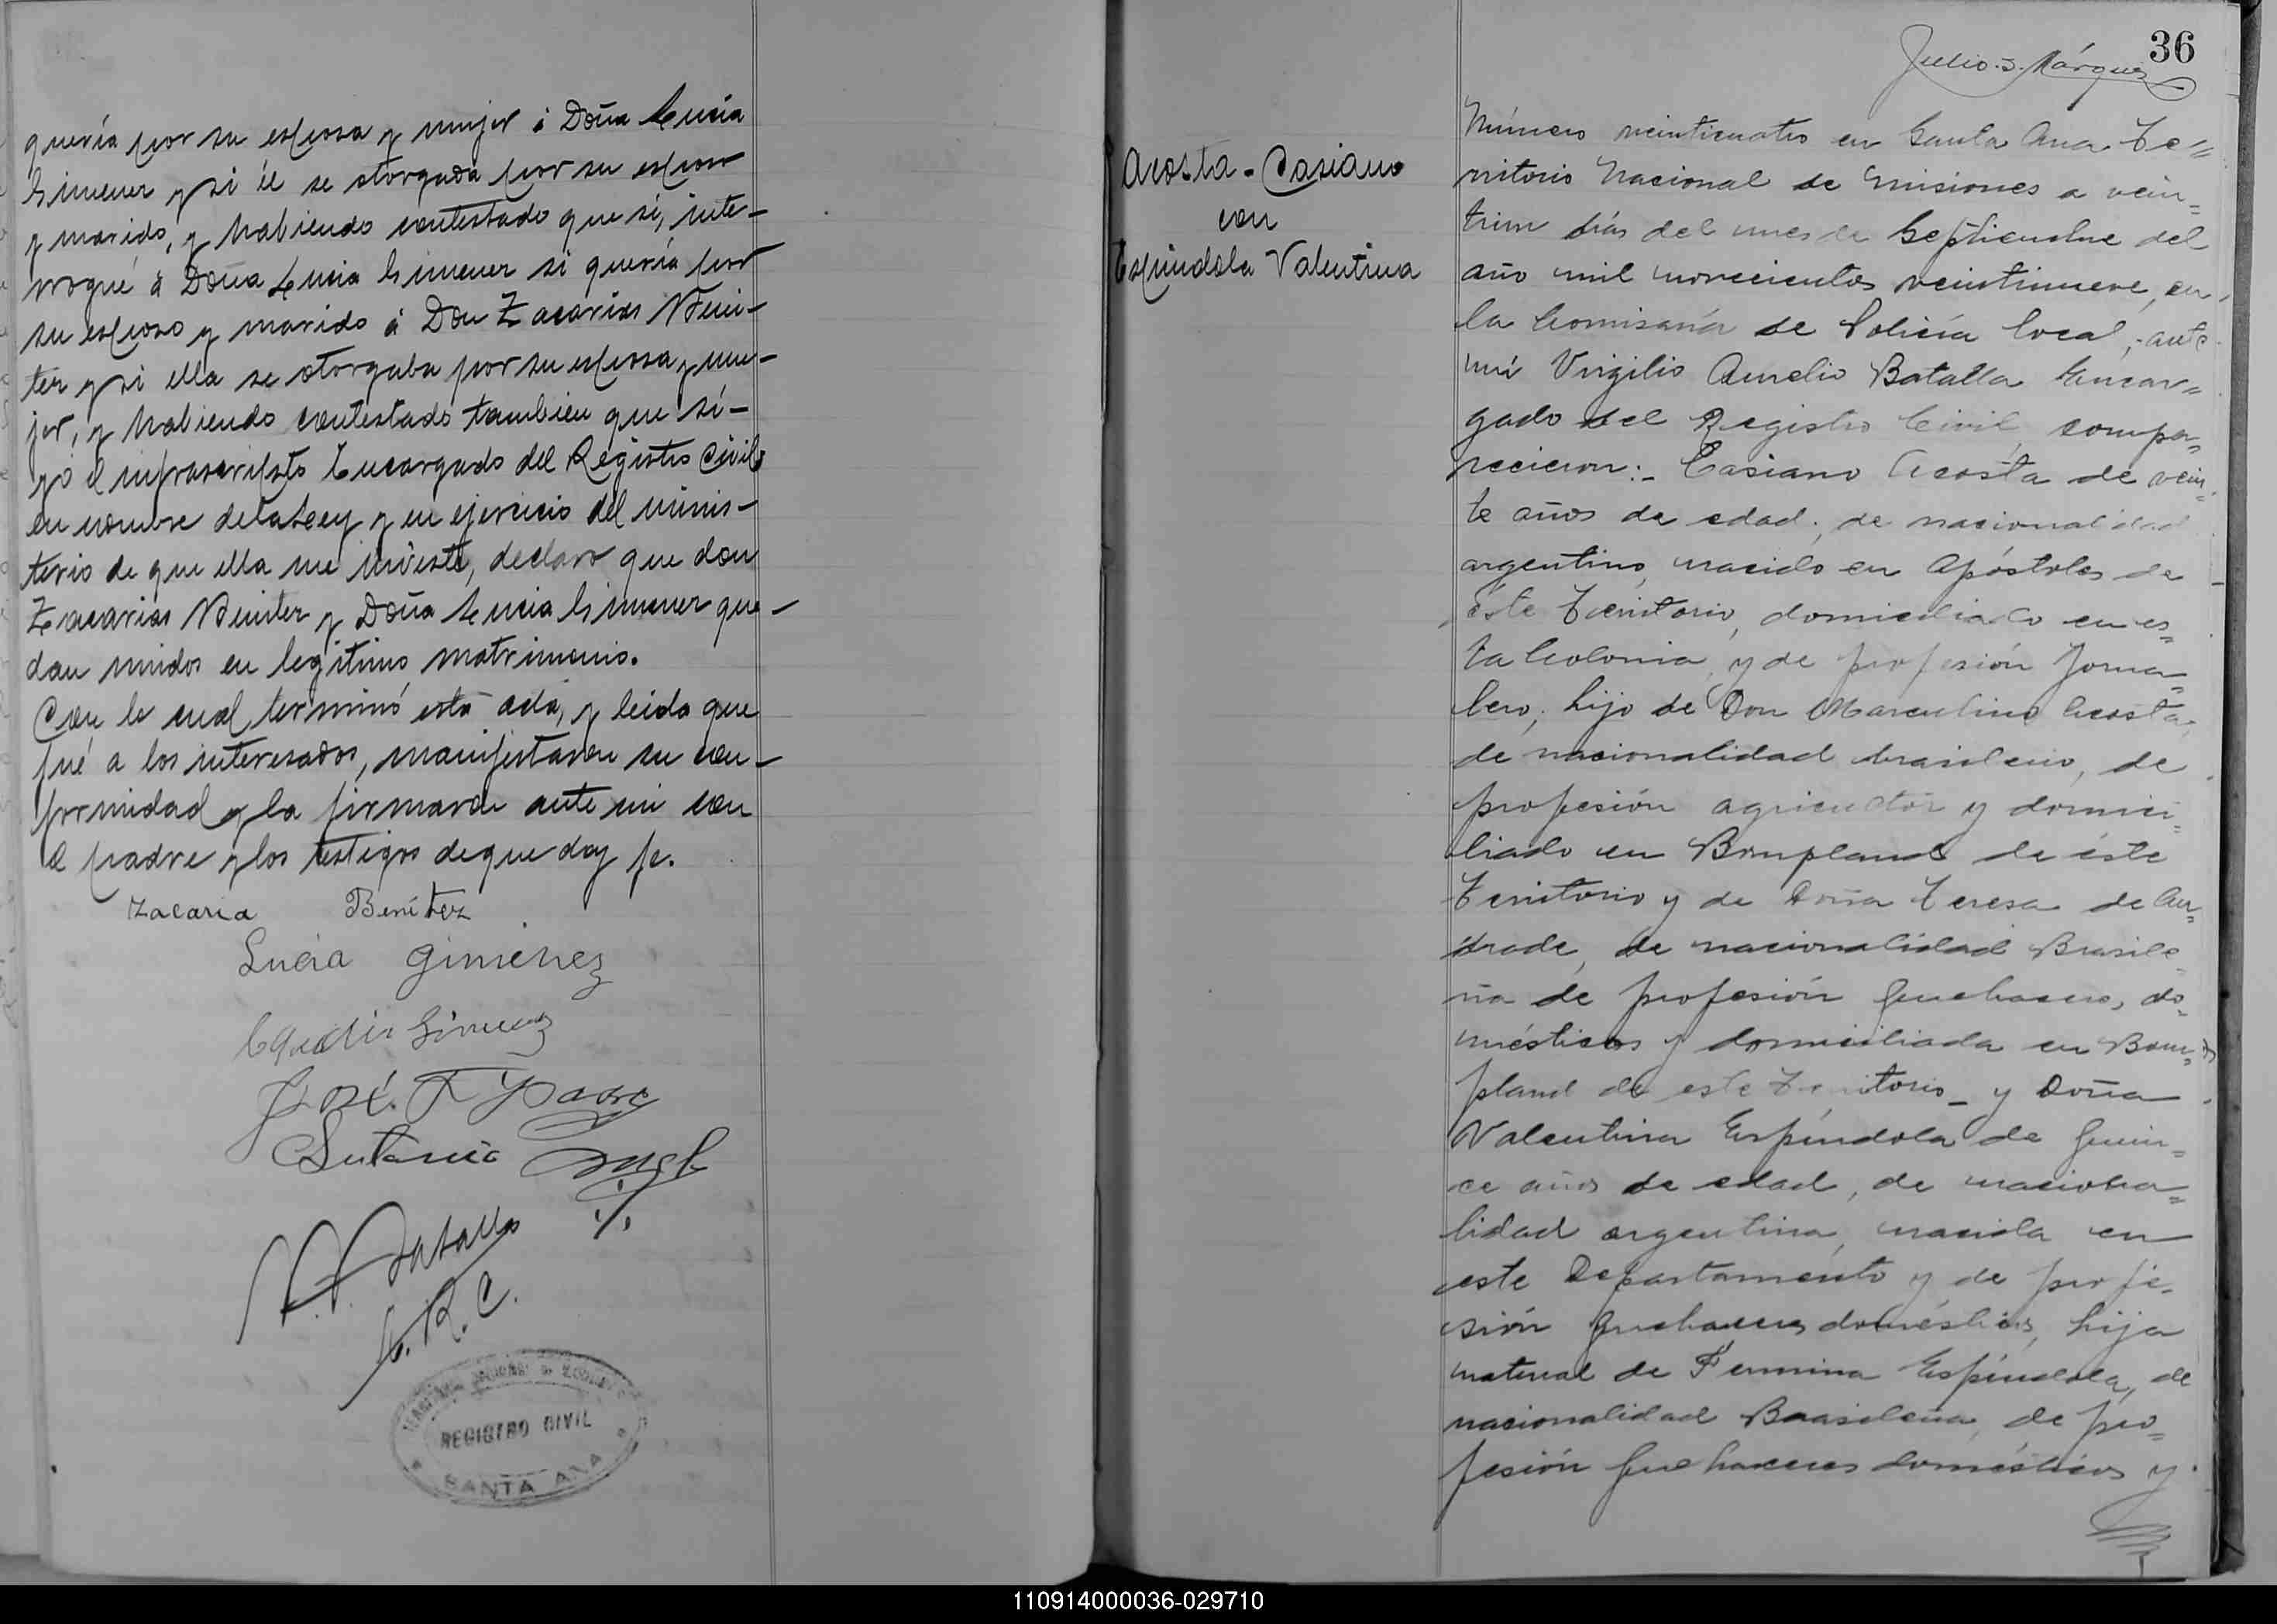 quería por su esposa y mujer á Doña Lucia
Gimenez y si él se otorgada por su esposo
y marido, y habiendo contestado que sí, inte-
rrogué á Doña Lucia Gimenez si quería por
su esposo y marido á Don Zacarías Beni-
tez y si ella se otorgaba por su esposa y mu-
jer, y habiendo contestado tambien que sí-
yó el infrascripto Encargado del Registro Civil
en nombre de la Ley y en ejercicio del minis-
terio de que ella me inviste, declaro que don
Zacarias Benitez y Doña Lucia Gimenez que-
dan unidos en legítimo matrimonio.
Con lo cual terminó esta acta, y leida que
fué a los interesados, manifestaron su con-
formidad y la firmaron ante mi con
el padre y los testigos de que doy fe.
Zacaria Benítez
Lucia Giménez
Gimenez
José.
Antonio
Batalla
E.R.C.
REGISTRO CIVIL
SANTA ANA
36
Julio. J. Márquez
Acosta - Casiano
con
Espíndola Valentina
Número veinticuatro en Santa Ana Te=
rritorio Nacional de Misiones a vein=
tiun días del mes de Septiembre del
año mil novecientos veintinueve, en
la Comisaría de Policía local, ante
mí Virgilio Aurelio Batalla Encar=
gado del Registro Civil, compa=
recieron:- Casiano Acosta de vein=
te años de edad, de nacionalidad
argentino, nacido en Apóstoles de
éste Territorio, domiciliado en es=
ta Colonia, y de profesión Jorna=
lero, hijo de Don Marculino Acosta,
de nacionalidad brasilero, de
profesión agricultor y domici=
liado en Bompland de éste
Territorio y de Doña Teresa de An=
drade, de nacionalidad Brasile=
ña de profesión quehaceres, do=
mésticos y domiciliada en Bom=
pland de este Territorio_ y Doña
Valentina Espíndola de quin=
ce años de edad, de naciona=
lidad argentina, nacida en
este Departamento y de profe-
sión quehaceres domésticos, hija
natural de Fermina Espíndola, de
nacionalidad Brasileña, de pro=
fesión quehaceres domésticos y
110914000036-029710